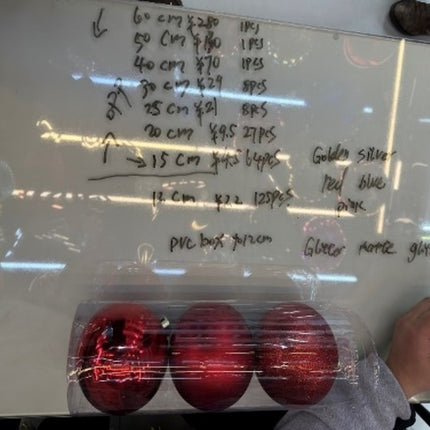 60 cm ¥280 1pcs
50 cm ¥180 1pcs
40 cm ¥70 1pcs
30 cm ¥29 8pcs
25 cm ¥21 8pcs
20 cm ¥9.5 27pcs
15 cm ¥4.5 64pcs
Golden silver
red blue
pink
12 cm ¥2.2 125pcs
PVC box 12cm
matte